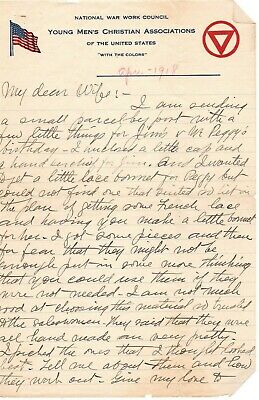 NATIONAL WAR WORK COUNCIL
YOUNG MEN'S CHRISTIAN ASSOCIATIONS
OF THE UNITED STATES
"WITH THE COLORS"
1918
My dear Wife:-
I am sending
a small parcel by post with a
few little things for Jim's & Mr Peggy's
birthday - I inclosed a little cap and
a hand for Jim. and I wanted
to get a little lace bonnet for Peggy but
could not find one that suited so hit on
the plan of getting some french lace
and having you make a little bonnet
for her. I got some pieces and then
for fear that they might not be
enough put in some more thinking
that you could use them if they
were not needed - I am not much
good at choosing this material so trusted
to the saleswomen. They said that they were
all hand made and very pretty -
I picked the ones that I thought looked
best. Tell me about them and how
they work out. Give my love to